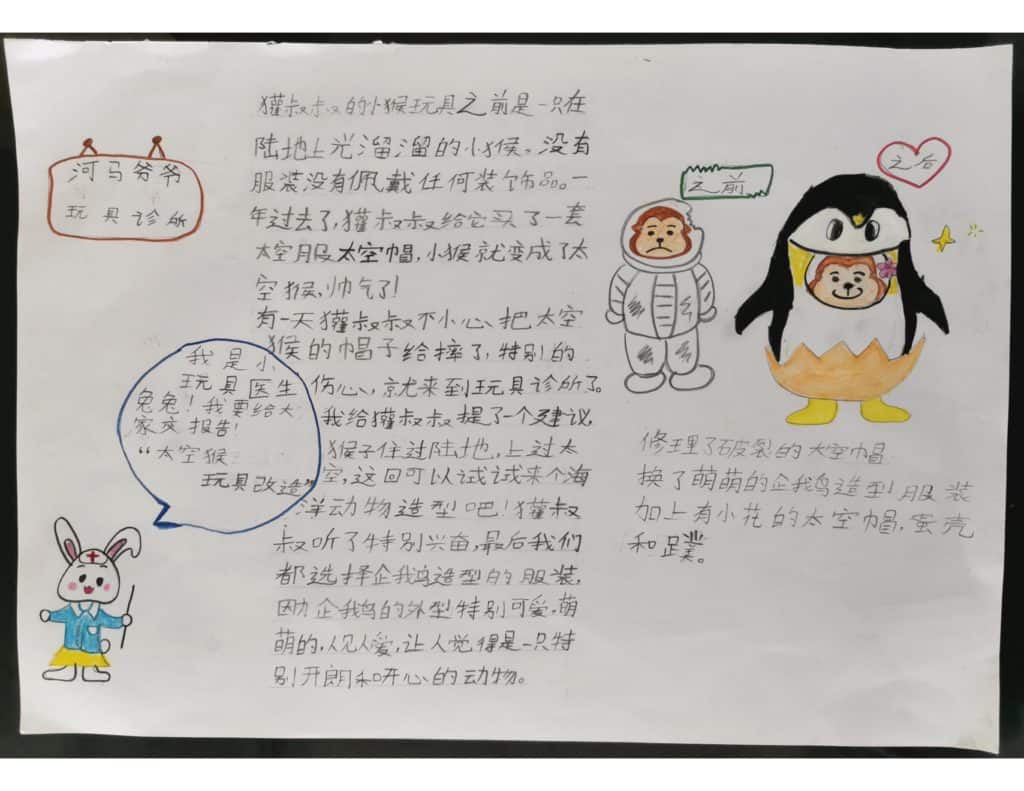 河马爷爷
玩具诊所
我是小
玩具医生
兔兔！我要给大
家交报告！
“太空猴
玩具改造”
獾叔叔的小猴玩具之前是一只在
陆地上光溜溜的小猴。没有
服装没有佩戴任何装饰品。一
年过去了，獾叔叔给它买了一套
太空服太空帽，小猴就变成了太
空猴，帅气了！
有一天獾叔叔不小心、把太空
猴的帽子给摔了，特别的
伤心、就来到玩具诊所了。
我给獾叔叔提了一个建议，
猴子住过陆地，上过太
空，这回可以试试来个海
洋动物造型吧！獾叔
叔听了特别兴奋，最后我们
都选择企鹅造型的服装，
因为企鹅的外型特别可爱，萌
萌的，人见人爱，让人觉得是一只特
别开朗和开心的动物。
之前
之后
修理了破裂的太空帽
换了萌萌的企鹅造型服装
加上有小花的太空帽，蛋壳
和